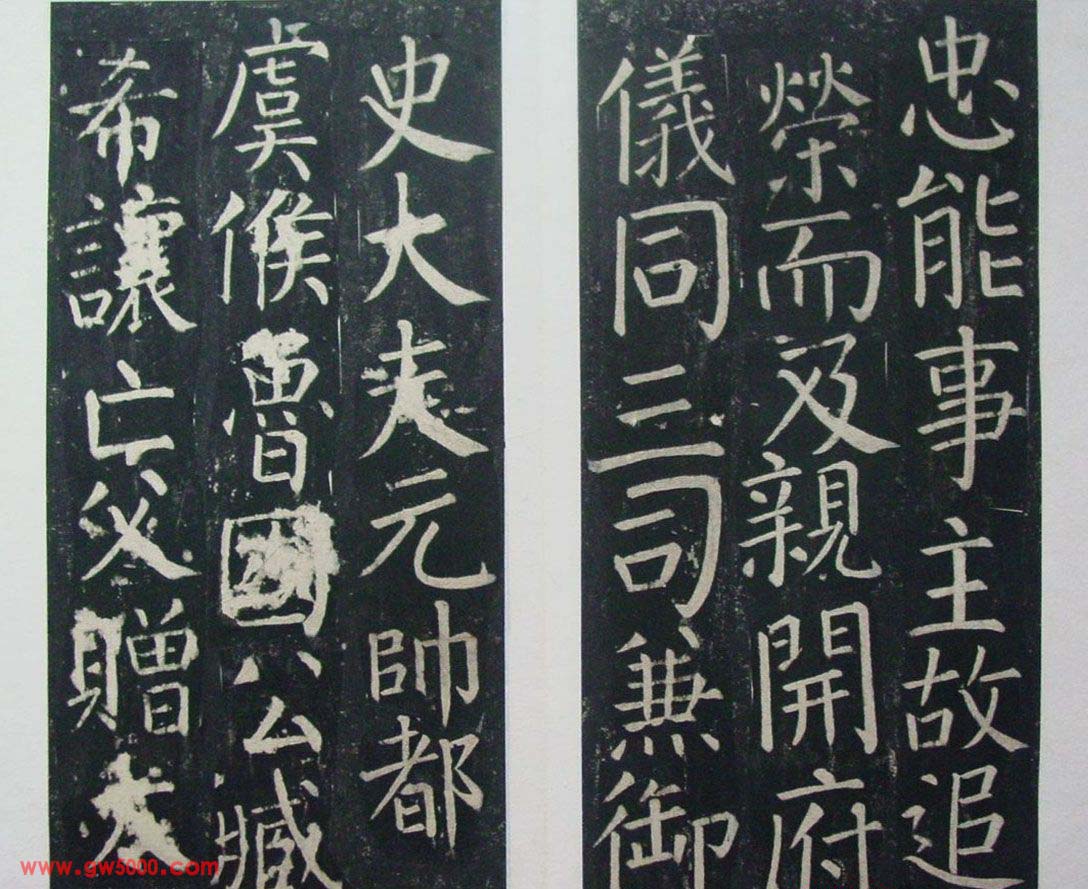 忠能事主故追
榮而及親開府
儀同三司兼御
史大夫元帥都
虞候魯國公臧
希讓亡父贈太
www.gw5000.com